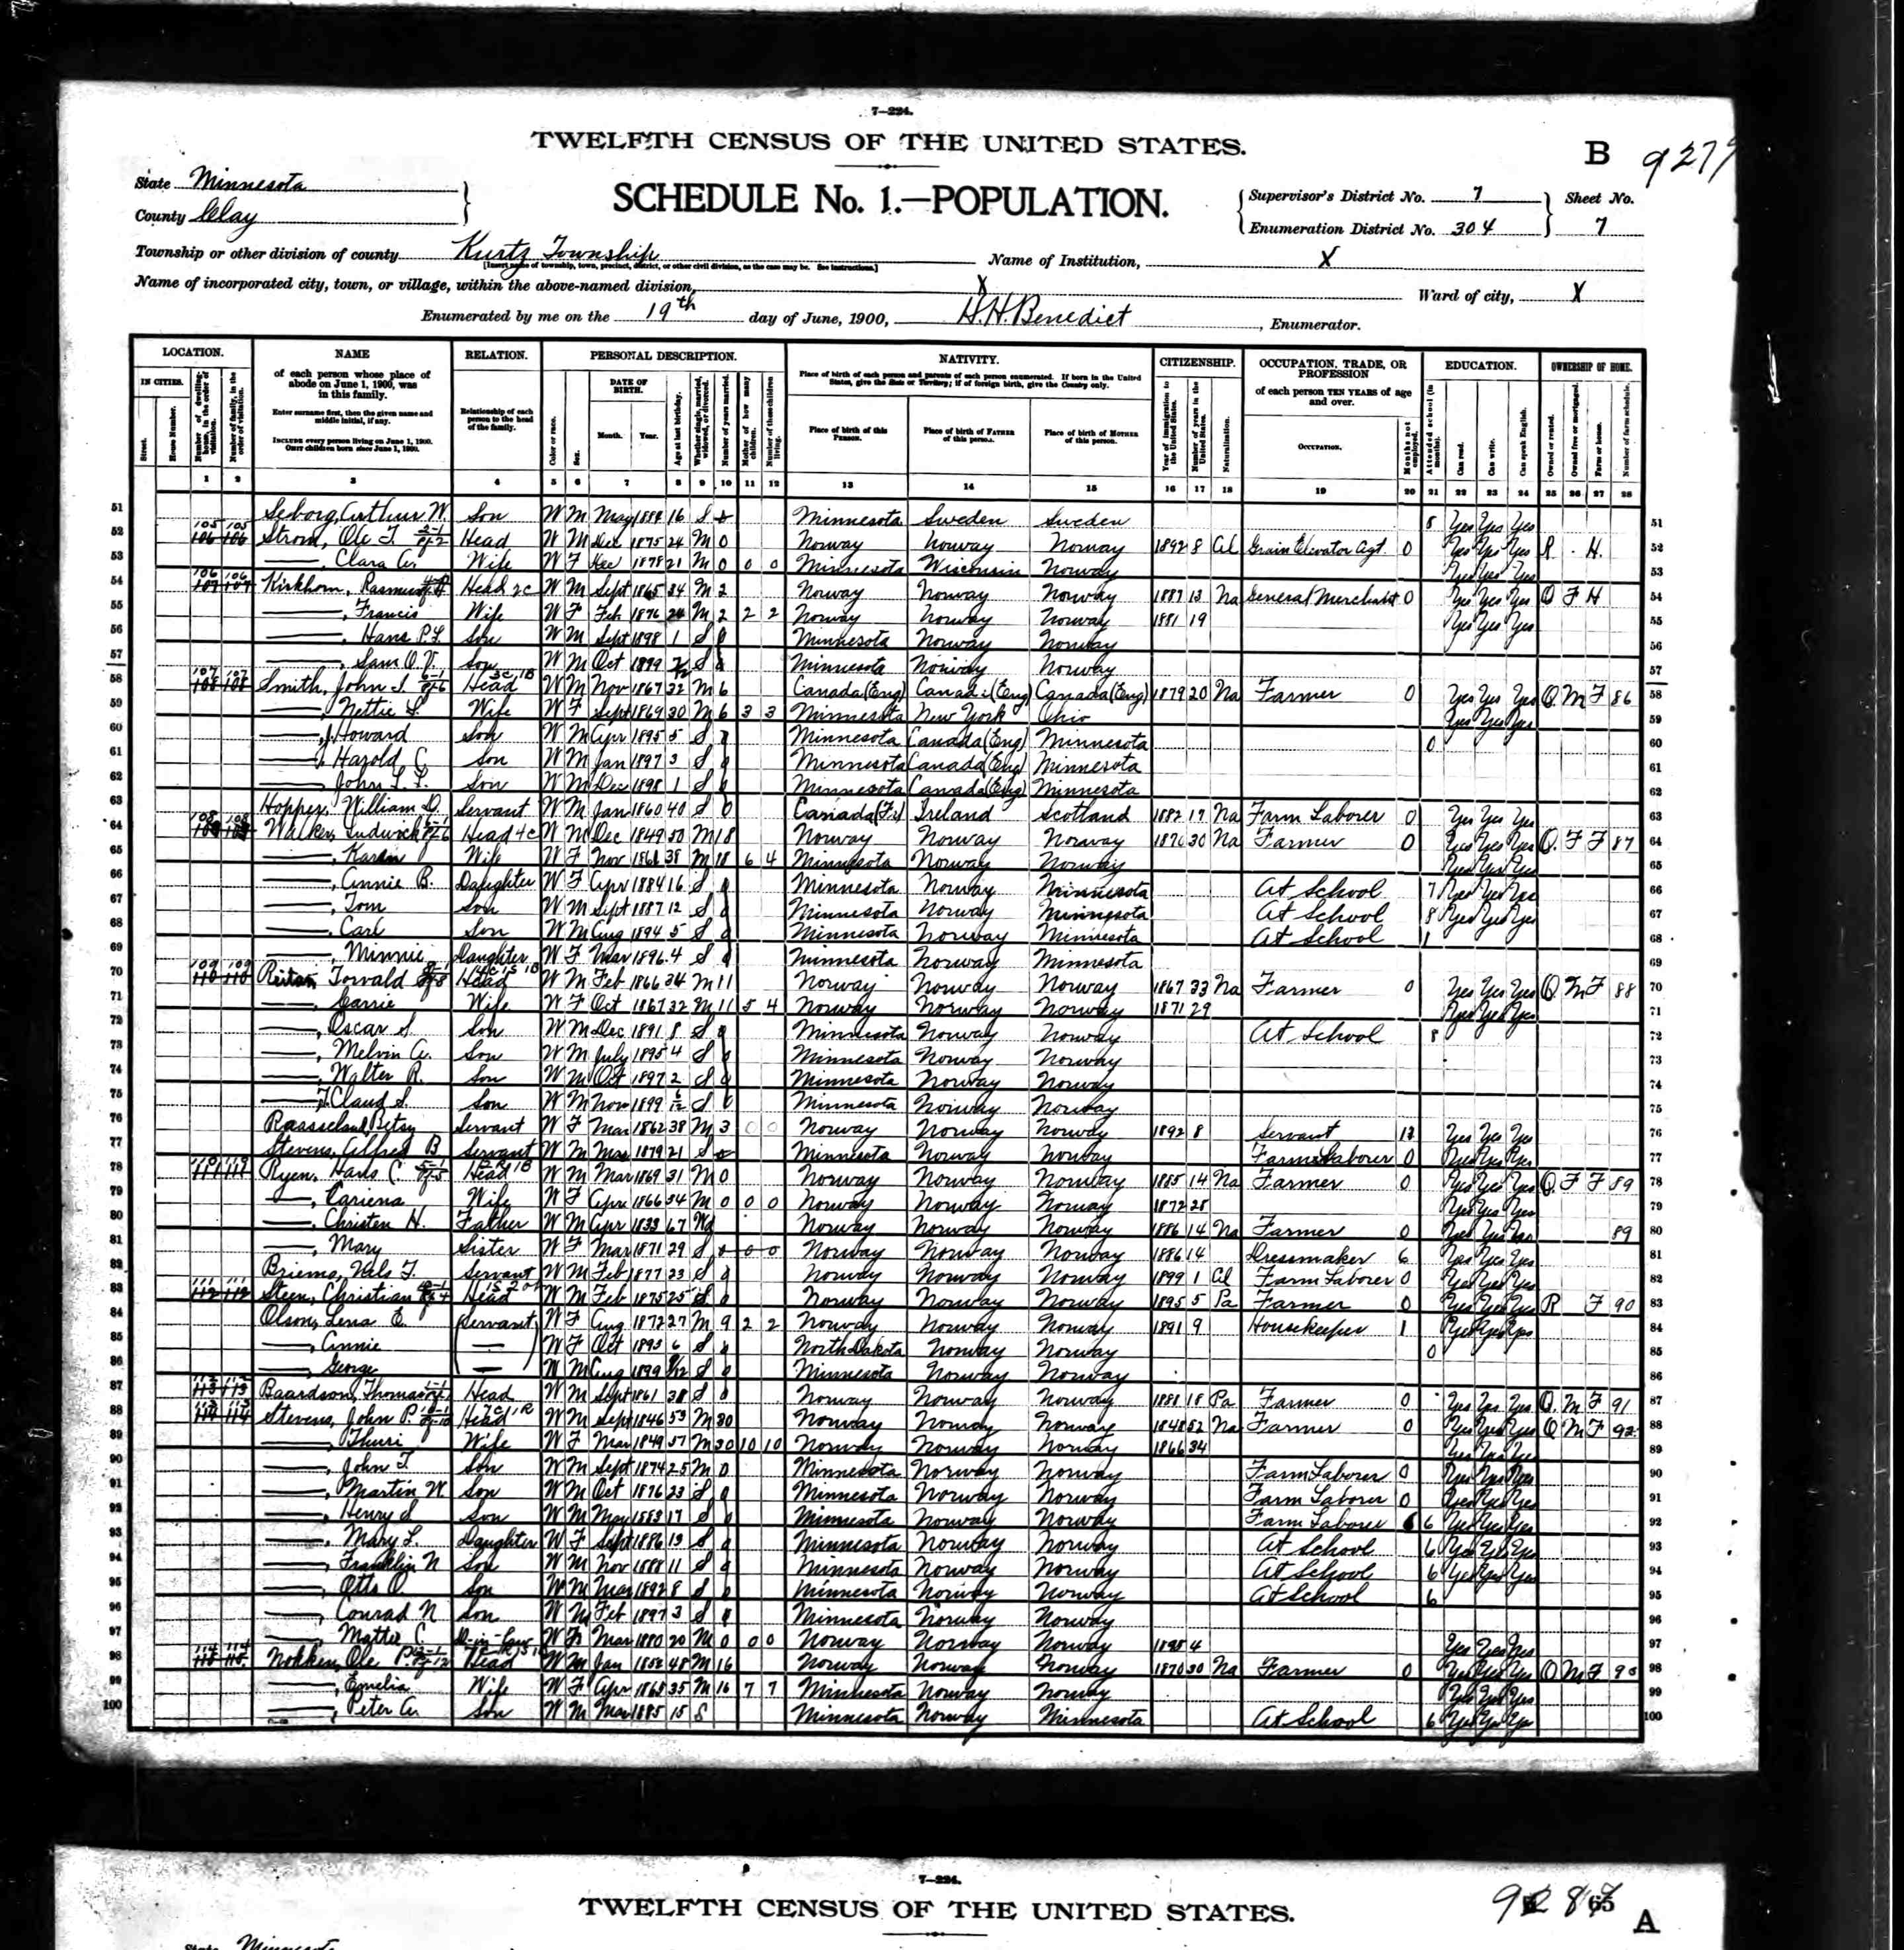 7—224.
TWELFTH CENSUS OF THE UNITED STATES.
B 9279
State Minnesota
County Clay
SCHEDULE No. 1.—POPULATION.
Supervisor's District No. 7 Sheet No.
Enumeration District No. 304 7
Township or other division of county Kurtz Township Name of Institution, X
[Insert name of township, town, precinct, district, or other civil division, as the case may be. See instructions.]
Name of incorporated city, town, or village, within the above-named division, X Ward of city, X
Enumerated by me on the 19th day of June, 1900, H.H. Benedict, Enumerator.
LOCATION. NAME RELATION. PERSONAL DESCRIPTION. NATIVITY. CITIZENSHIP. OCCUPATION, TRADE, OR PROFESSION EDUCATION. OWNERSHIP OF HOME.
IN CITIES. of each person whose place of abode on June 1, 1900, was in this family. DATE OF BIRTH. of each person TEN YEARS of age and over.
Street. House Number. Enter surname first, then the given name and middle initial, if any. Relationship of each person to the head of the family. Color or race. Sex. Month. Year. Age at last birthday. Place of birth of this Person. Place of birth of Father of this person. Place of birth of Mother of this person. Naturalization. Occupation. Can read. Can write. Can speak English.
INCLUDE every person living on June 1, 1900. OMIT children born since June 1, 1900.
1 2 3 4 5 6 7 8 9 10 11 12 13 14 15 16 17 18 19 20 21 22 23 24 25 26 27 28
51 Seborg, Arthur W. Son W M May 16 S Minnesota Sweden Sweden 8 Yes Yes Yes 51
52 Strom, Ole Head W M Dec 1875 24 M 0 Norway Norway Norway 1892 8 Al Grain Elevator Agt. 0 Yes Yes Yes R H 52
53 Clara Wife W F Dec 1878 21 M 0 0 0 Minnesota Wisconsin Norway Yes Yes Yes 53
54 Kirkhorn, Rasmus Head W M Sept 1865 34 M 2 Norway Norway Norway 1887 13 Na General Merchant 0 Yes Yes Yes O F H 54
55 Francis Wife W F Feb 1876 24 M 2 2 2 Norway Norway Norway 1881 19 Yes Yes Yes 55
56 Hans P. Son W M Sept 1898 1 S Minnesota Norway Norway 56
57 Sam O. Son W M Oct 1899 S Minnesota Norway Norway 57
58 Smith, John Head W M Nov 1867 32 M 6 Canada (Eng) Canada (Eng) Canada (Eng) 1879 20 Na Farmer 0 Yes Yes Yes O M F 86 58
59 Nettie Wife W F Sept 1869 30 M 6 3 3 Minnesota New York Ohio Yes Yes Yes 59
60 Howard Son W M Apr 1895 5 S Minnesota Canada (Eng) Minnesota 0 60
61 Harold C. Son W M Jan 1897 3 S Minnesota Canada (Eng) Minnesota 61
62 John Son W M Dec 1898 1 S Minnesota Canada (Eng) Minnesota 62
63 Hopper, William D. Servant W M Jan 1860 40 S Canada (Fr) Ireland Scotland 1882 17 Na Farm Laborer 0 Yes Yes Yes 63
64 Head W M Dec 1849 50 M 18 Norway Norway Norway 1870 30 Na Farmer 0 Yes Yes Yes O F F 87 64
65 Karen Wife W F Nov 1861 38 M 18 6 4 Minnesota Norway Norway Yes Yes Yes 65
66 Annie B. Daughter W F Apr 1884 16 S Minnesota Norway Minnesota At School 7 Yes Yes Yes 66
67 Tom Son W M Sept 1887 12 S Minnesota Norway Minnesota At School 8 Yes Yes Yes 67
68 Carl Son W M Aug 1894 5 S Minnesota Norway Minnesota At School 1 68
69 Minnie Daughter W F Mar 1896 4 S Minnesota Norway Minnesota 69
70 Torvald Head W M Feb 1866 34 M 11 Norway Norway Norway 1867 33 Na Farmer 0 Yes Yes Yes O M F 88 70
71 Carrie Wife W F Oct 1867 32 M 11 5 4 Norway Norway Norway 1871 29 Yes Yes Yes 71
72 Oscar S. Son W M Dec 1891 8 S Minnesota Norway Norway At School 8 72
73 Melvin A. Son W M July 1895 4 S Minnesota Norway Norway 73
74 Walter R. Son W M Oct 1897 2 S Minnesota Norway Norway 74
75 Claud S. Son W M Nov 1899 6/12 S Minnesota Norway Norway 75
76 Betsy Servant W F Mar 1862 38 M 3 0 0 Norway Norway Norway 1892 8 Servant Yes Yes Yes 76
77 Stevens, Alfred B Servant W M Mar 1879 21 S Minnesota Norway Norway Farm Laborer 0 Yes Yes Yes 77
78 Ryen, Hans C. Head W M Mar 1869 31 M 0 Norway Norway Norway 1885 14 Na Farmer 0 Yes Yes Yes O F F 89 78
79 Cariena Wife W F Apr 1866 34 M 0 0 0 Norway Norway Norway 1872 28 Yes Yes Yes 79
80 Christen H. Father W M Apr 1833 67 Wd Norway Norway Norway 1886 14 Na Farmer 0 Yes Yes Yes 89 80
81 Mary Sister W F Mar 1871 29 S 0 0 Norway Norway Norway 1886 14 Dressmaker 6 Yes Yes Yes 81
82 Briemo, Nels T. Servant W M Feb 1877 23 S Norway Norway Norway 1899 1 Al Farm Laborer 0 Yes Yes Yes 82
83 Steen, Christian Head W M Feb 1875 25 S Norway Norway Norway 1895 5 Pa Farmer 0 Yes Yes Yes R F 90 83
84 Olson, Lena E. Servant W F Aug 1872 27 M 9 2 2 Norway Norway Norway 1891 9 Housekeeper 1 Yes Yes Yes 84
85 Annie W F Oct 1893 6 S North Dakota Norway Norway 0 85
86 George W M Aug 1899 S Minnesota Norway Norway 86
87 Baardson, Thomas Head W M Sept 1861 38 S Norway Norway Norway 18 Pa Farmer 0 Yes Yes Yes O M F 91 87
88 Stevens, John P. Head W M Sept 1846 53 M 30 Norway Norway Norway 1848 52 Na Farmer 0 Yes Yes Yes O M F 92 88
89 Thuri Wife W F Mar 1849 51 M 30 10 10 Norway Norway Norway 1866 34 Yes Yes Yes 89
90 John T. Son W M Sept 1874 25 M 0 Minnesota Norway Norway Farm Laborer 0 Yes Yes Yes 90
91 Martin W. Son W M Oct 1876 23 S Minnesota Norway Norway Farm Laborer 0 Yes Yes Yes 91
92 Henry S Son W M May 1883 17 S Minnesota Norway Norway Farm Laborer 6 6 Yes Yes Yes 92
93 Mary L. Daughter W F Sept 1886 13 S Minnesota Norway Norway At School 6 Yes Yes Yes 93
94 Franklin N Son W M Nov 1888 11 S Minnesota Norway Norway At School 6 Yes Yes Yes 94
95 Otto O. Son W M Mar 1892 8 S Minnesota Norway Norway At School 6 95
96 Conrad N Son W M Feb 1897 3 S Minnesota Norway Norway 96
97 Mattie C. D-in-law W F Mar 1880 20 M 0 0 0 Norway Norway Norway 4 Yes Yes Yes 97
98 Nokken, Ole P. Head W M Jan 1852 48 M 16 Norway Norway Norway 1870 30 Na Farmer 0 Yes Yes Yes O M F 98
99 Emelia Wife W F Apr 35 M 16 7 7 Minnesota Norway Norway Yes Yes Yes 99
100 Peter A. Son W M Mar 1885 15 S Minnesota Norway Minnesota At School 6 Yes Yes Yes 100
7—224.
TWELFTH CENSUS OF THE UNITED STATES.
A
State Minnesota